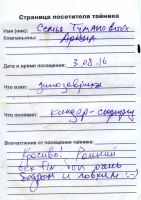 Страница посетителя тайника
Имя (ник): Семья Тумановых
Компаньоны: Арина
Дата и время посещения: 3.08.16
Что взял: динозаврика
Что положил: киндер-сюрприз
Впечатления от посещения тайника:
Красиво!
был очень
бодрым и ловким! :-)